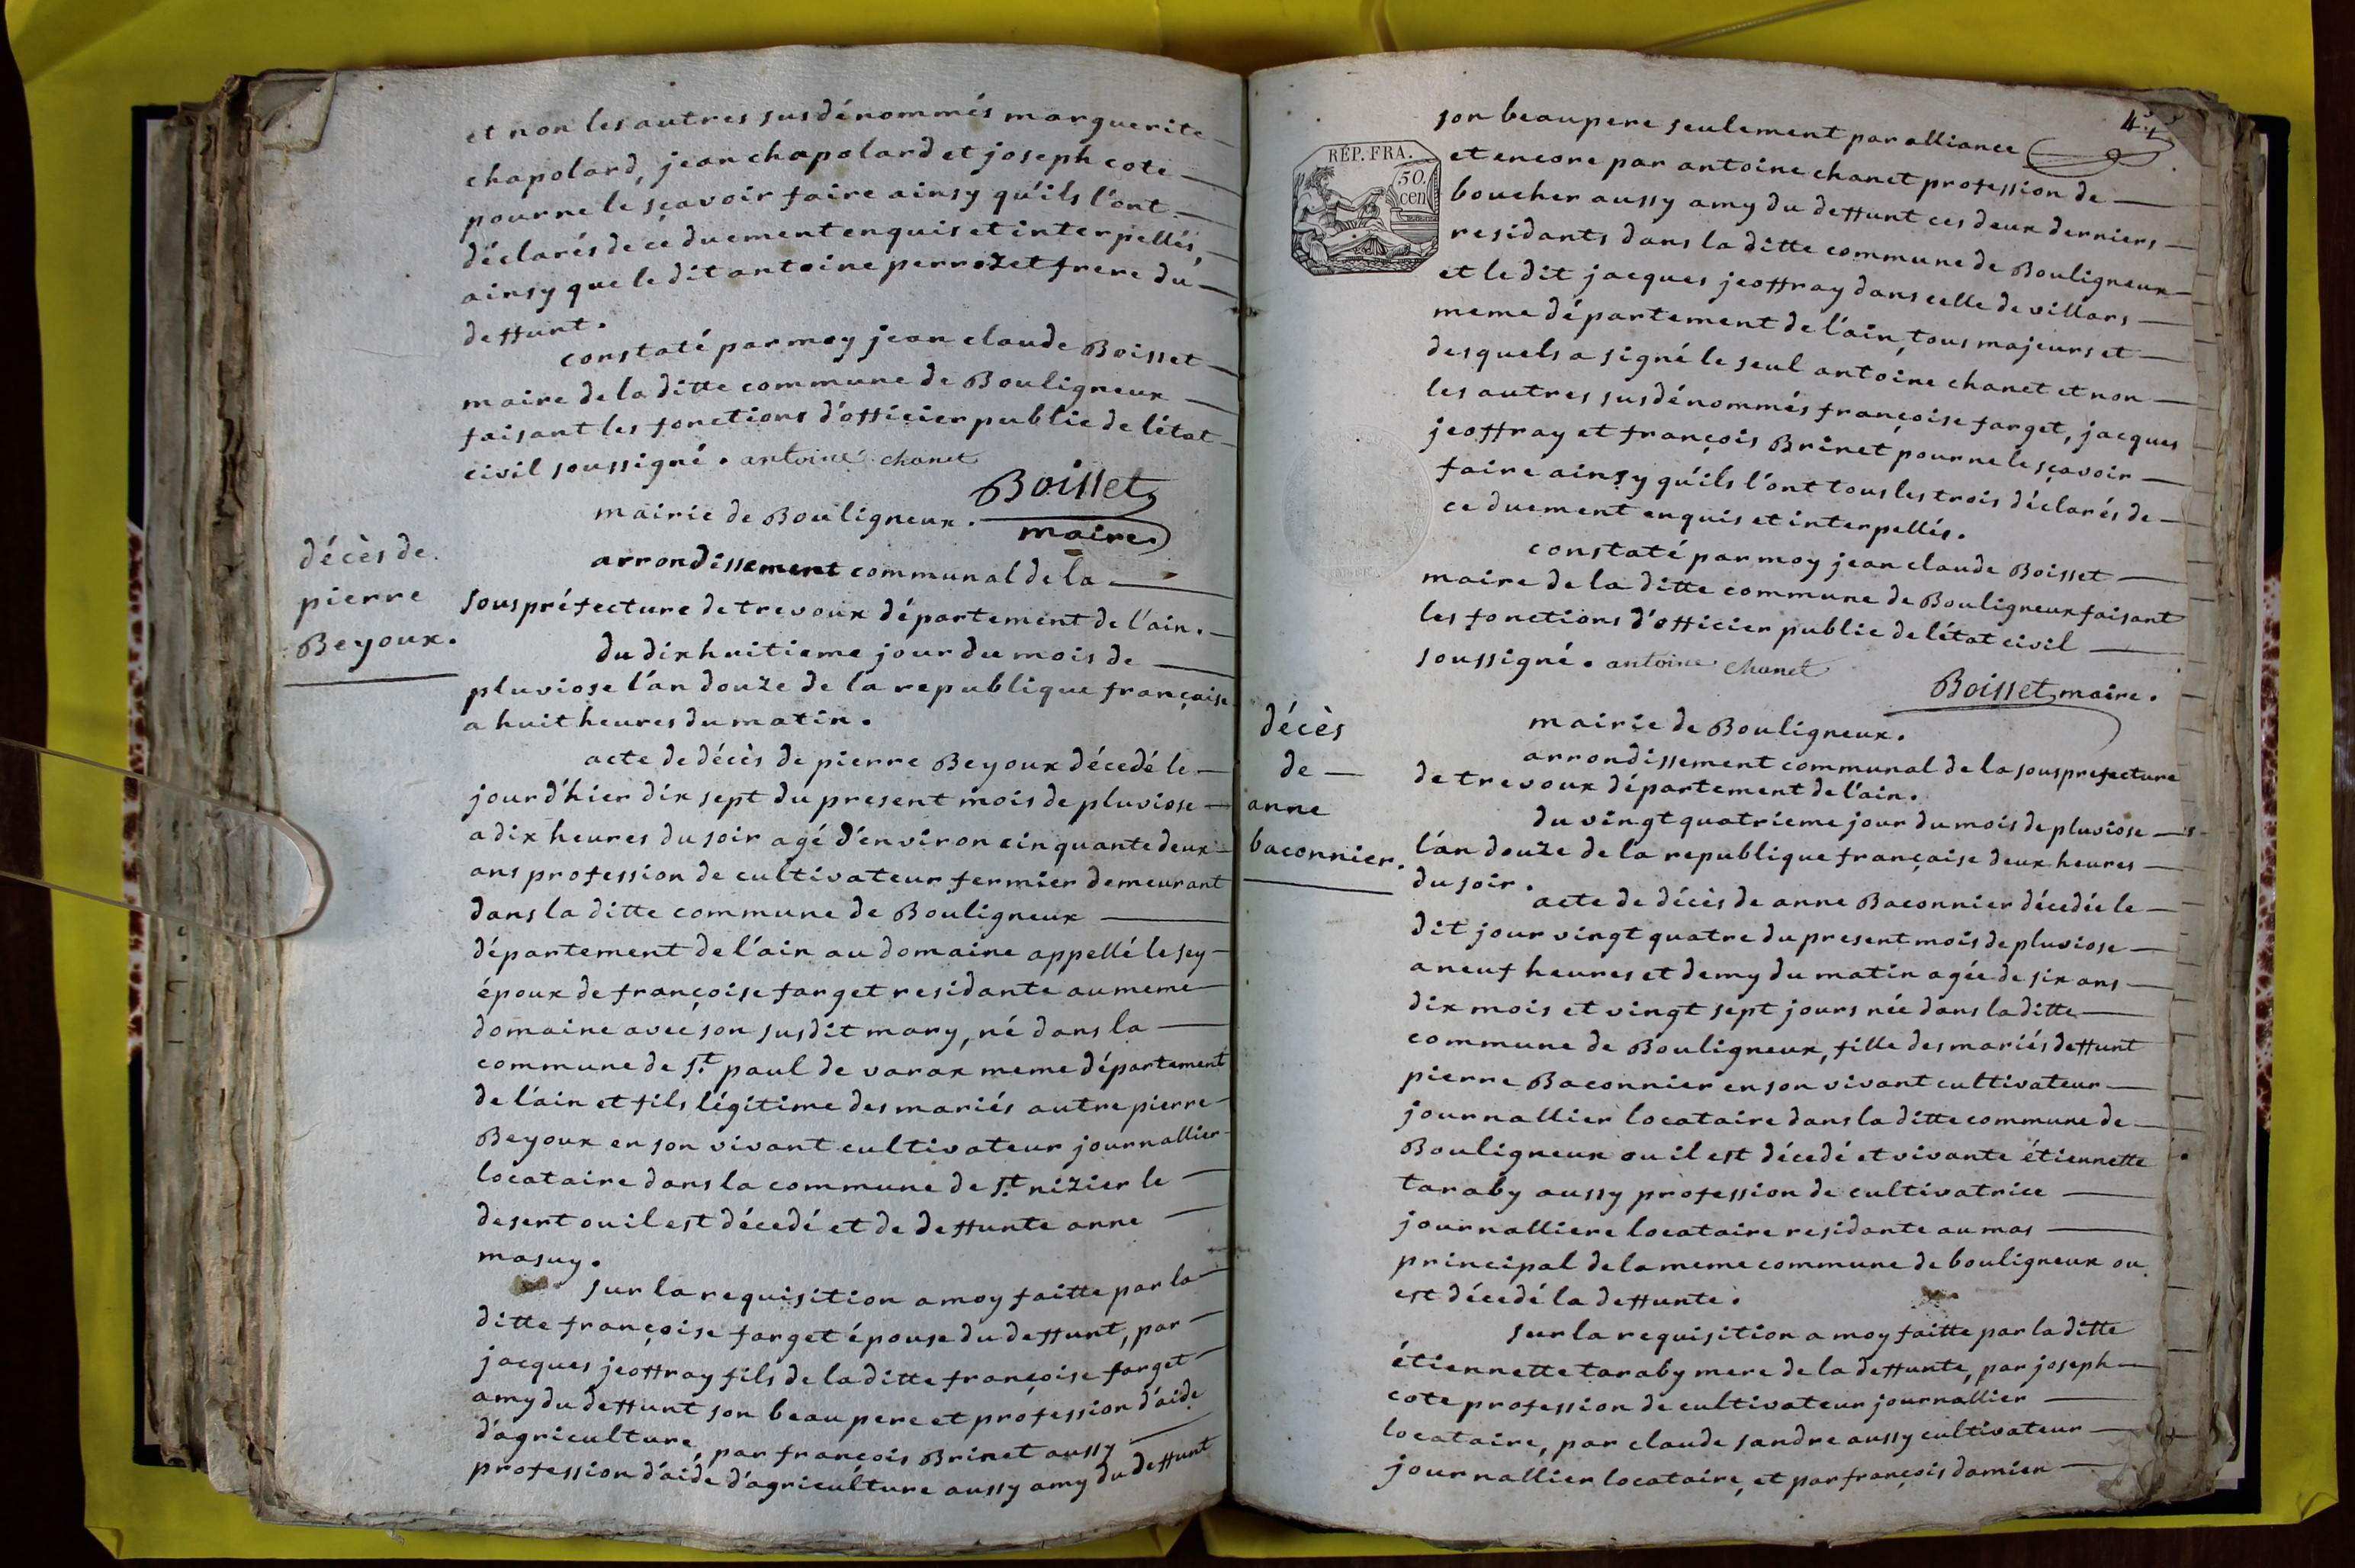 et non les autres susdénommés marguerite
chapolard, jean chapolard et joseph cote
pour ne le sçavoir faire ainsy qu'ils l'ont
déclarés de ce duement enquis et interpellés,
ainsy que le dit antoine perrozet frere du
deffunt.
constaté par moy jean claude Boisset
maire de la ditte commune de Bouligneux
faisant les fonctions d'officier public de l'état
civil soussigné. antoine chanet
Boisset
maire
mairie de Bouligneux.
décès de
pierre
Beyoux.
arrondissement communal de la
souspréfecture de trevoux département de l'ain.
du dix huitieme jour du mois de
pluviose l'an douze de la republique française
a huit heures du matin.
acte de décès de pierre Beyoux décedé le
jour d'hier dix sept du present mois de pluviose
a dix heures du soir agé d'environ cinquante deux
ans profession de cultivateur fermier demeurant
dans la ditte commune de Bouligneux
département de l'ain au domaine appellé le sey
époux de françoise farget residante au meme
domaine avec son susdit mary, né dans la
commune de St. paul de varax meme département
de l'ain et fils légitime des mariés autre pierre
Beyoux en son vivant cultivateur journallier
locataire dans la commune de St. nizier le
desert ou il est décedé et de deffunte anne
masuy.
sur la requisition a moy faitte par la
ditte françoise farget épouse du deffunt, par
jacques jeoffray fils de la ditte françoise farget
amy du deffunt son beau pere et profession d'aide
d'agriculture, par françois Brinet aussy
profession d'aide d'agriculture aussy amy du deffunt
son beaupere seulement par alliance
RÉP. FRA.
50.
cen
et encore par antoine chanet profession de
boucher aussy amy du deffunt ces deux derniers
residants dans la ditte commune de Bouligneux
et le dit jacques jeoffray dans celle de villars
meme département de l'ain, tous majeurs et
desquels a signé le seul antoine chanet et non
les autres susdénommés françoise farget, jacques
jeoffray et françois Brinet pour ne le sçavoir
faire ainsy qu'ils l'ont tous les trois déclarés de
ce duement enquis et interpellés.
constaté par moy jean claude Boisset
maire de la ditte commune de Bouligneux faisant
les fonctions d'officier public de l'état civil
soussigné. antoine chanet
Boisset maire.
mairie de Bouligneux.
décès
de
anne
baconnier.
arrondissement communal de la sousprefecture
de trevoux département de l'ain.
du vingt quatrieme jour du mois de pluviose
l'an douze de la republique française deux heures
du soir.
acte de décès de anne Baconnier décedée le
dit jour vingt quatre du present mois de pluviose
a neuf heures et demy du matin agée de six ans
dix mois et vingt sept jours née dans la ditte
commune de Bouligneux, fille des mariés deffunt
pierre Baconnier en son vivant cultivateur
journallier locataire dans la ditte commune de
Bouligneux ou il est décedé et vivante étiennette
taraby aussy profession de cultivatrice
journalliere locataire residante au mas
principal de la meme commune de bouligneux ou
est décedé la deffunte.
sur la requisition a moy faitte par la ditte
étiennette taraby mere de la deffunte, par joseph
cote profession de cultivateur journallier
locataire, par claude sandre aussy cultivateur
journallier locataire, et par françois damien